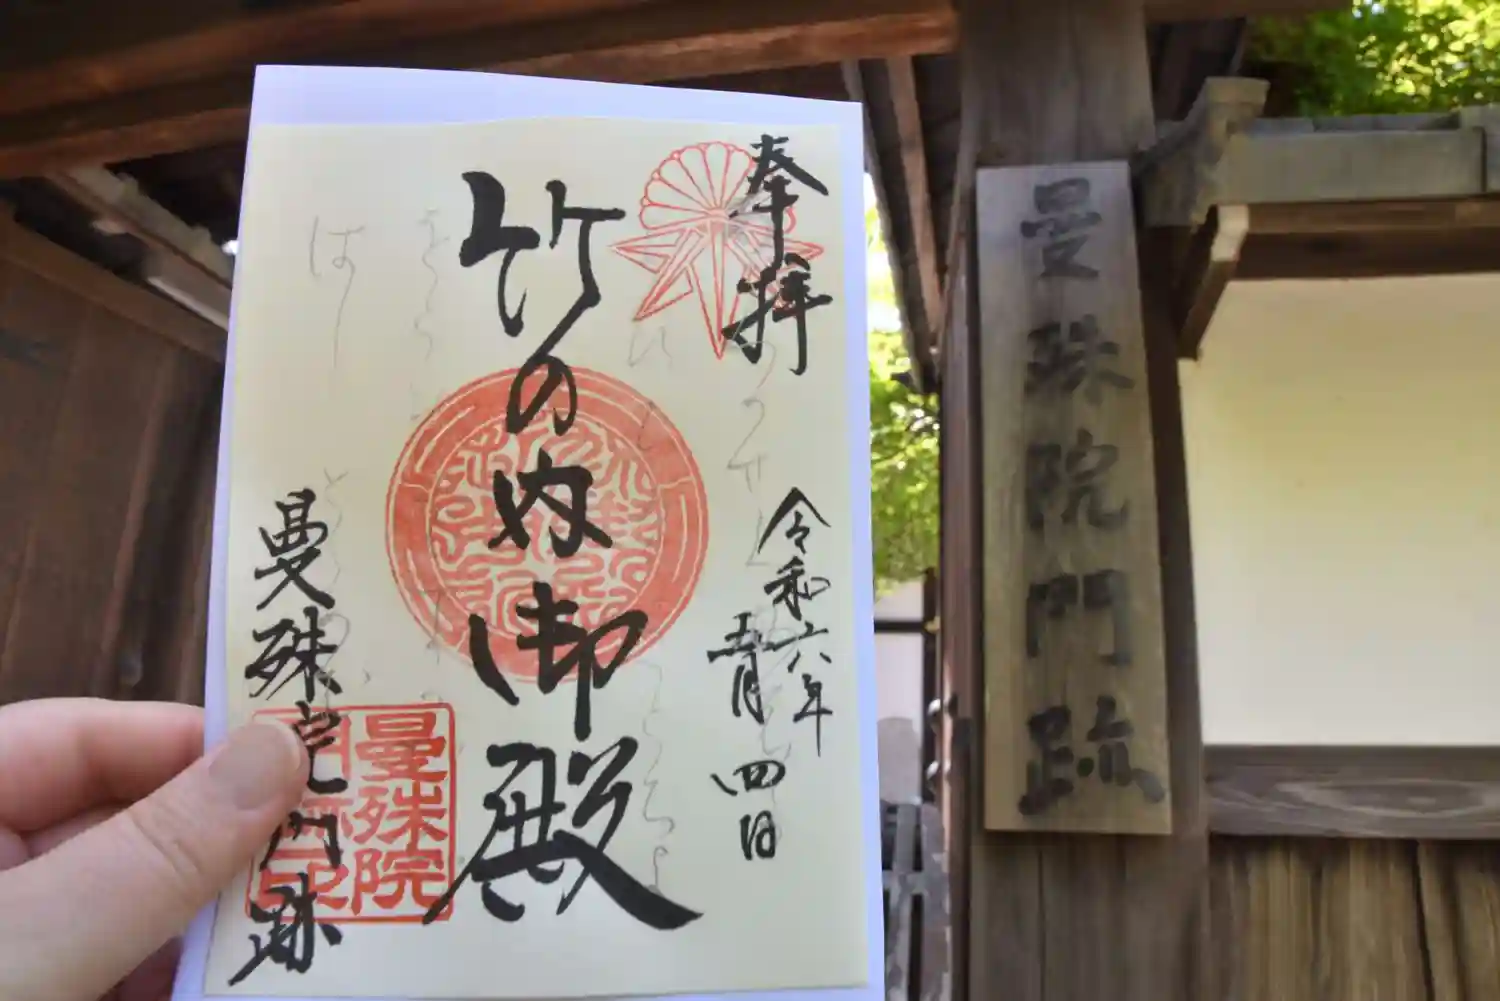 奉拝
令和六年
五月四日
竹の内御殿
曼殊院門跡
曼殊院
曼殊院門跡